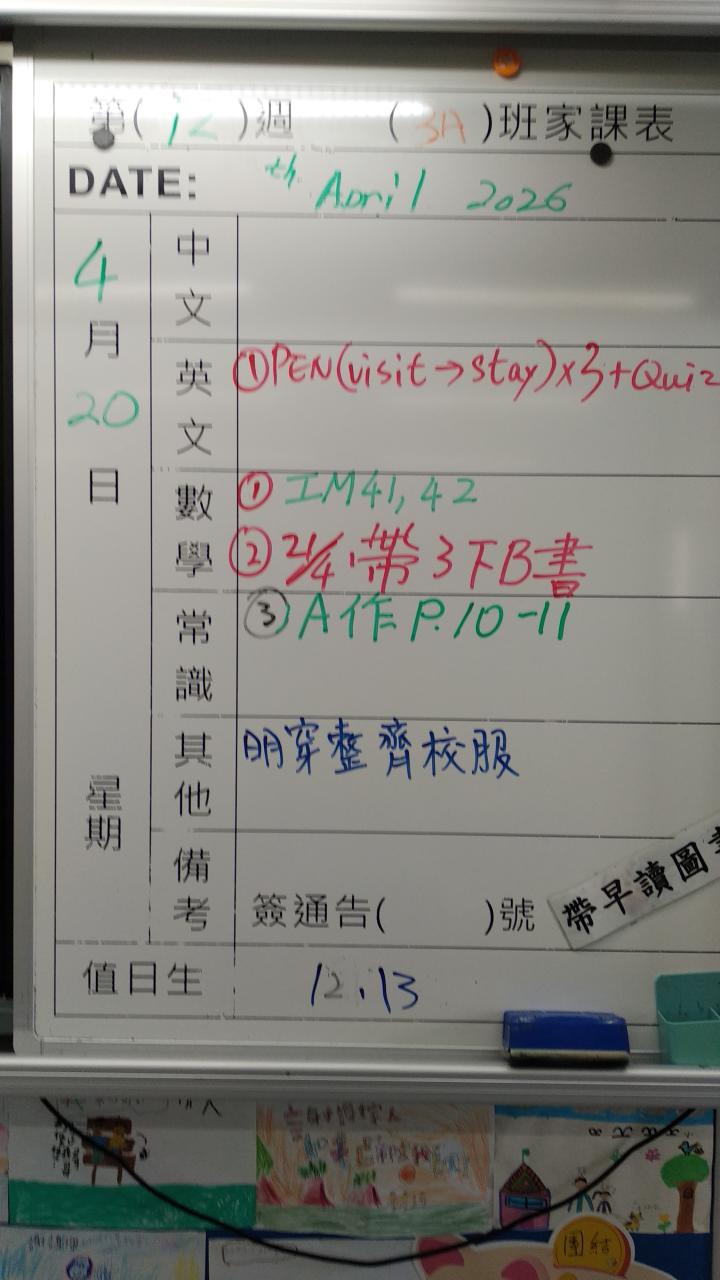 第(12)週 (3A)班家課表
DATE: th April 2026
4月20日 星期
中文
英文 ①PEN(visit→stay)x3+Quiz
數學 ①IM41,42
②21/4帶3下B書
常識 ③A作P.10-11
其他 明穿整齊校服
備考 簽通告( )號
帶早讀圖
值日生 12.13
團結